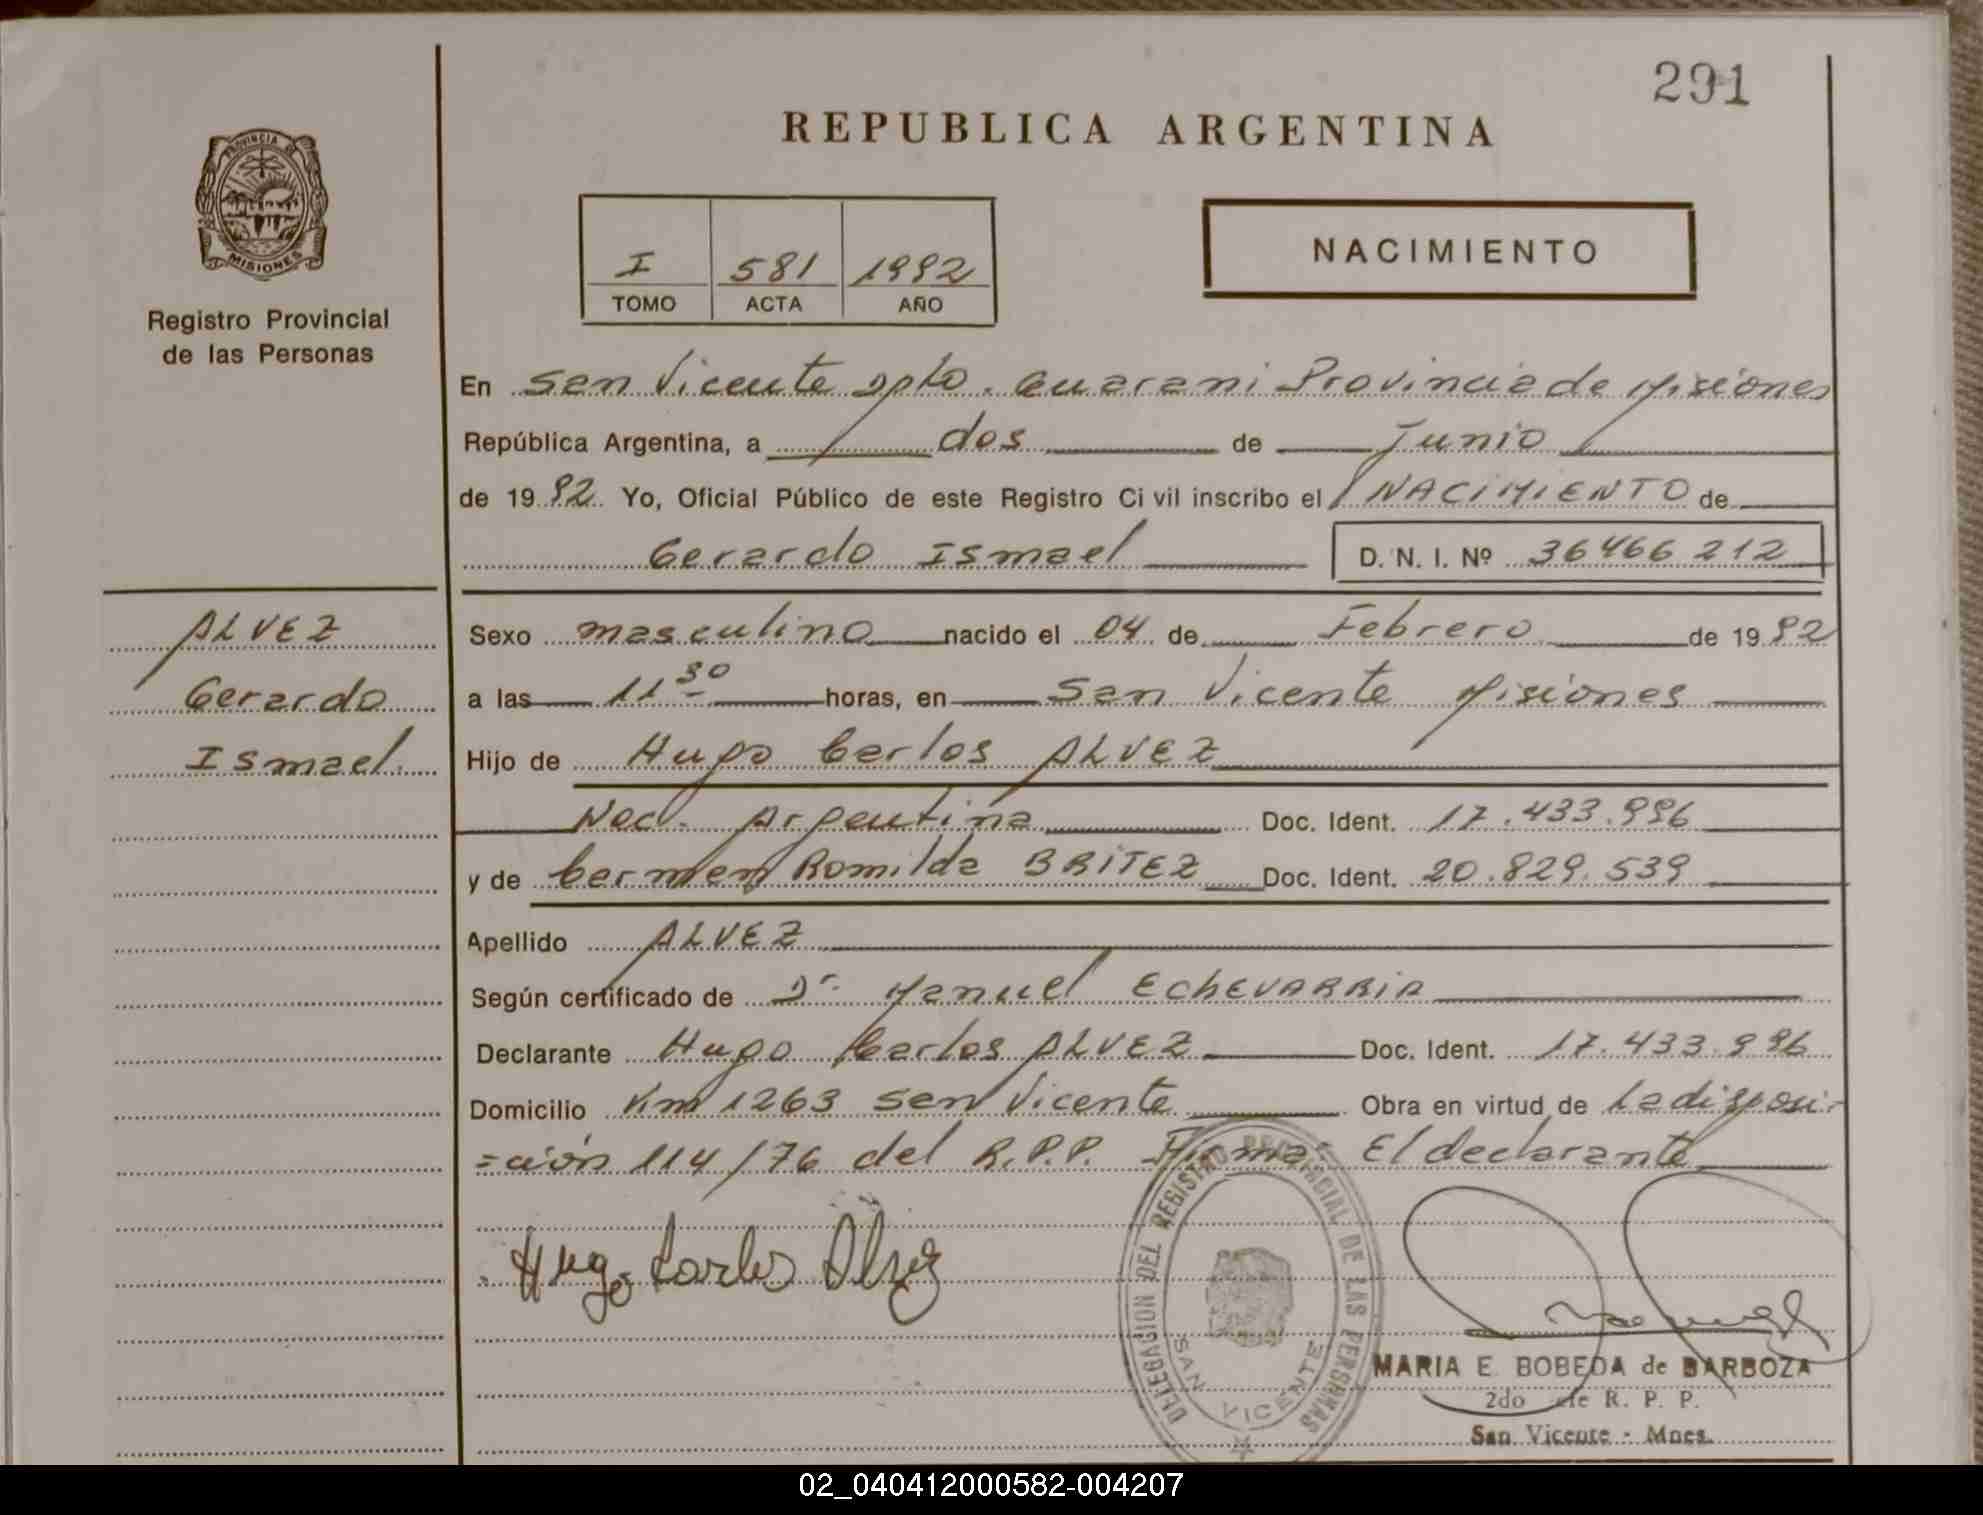 291
REPUBLICA ARGENTINA
PROVINCIA DE
MISIONES
Registro Provincial
de las Personas
I 581 1992
TOMO ACTA AÑO
NACIMIENTO
En San Vicente Dpto. Guarani Provincia de Misiones
República Argentina, a dos de Junio
de 1992 Yo, Oficial Público de este Registro Civil inscribo el NACIMIENTO de
Gerardo Ismael D. N. I. Nº 36466212
ALVEZ
Gerardo
Ismael
Sexo masculino nacido el 04 de Febrero de 1992
a las 11 30 horas, en San Vicente Misiones
Hijo de Hugo Carlos ALVEZ
Nac. Argentina Doc. Ident. 17.433.996
y de Carmen Romilda BRITEZ Doc. Ident. 20.829.539
Apellido ALVEZ
Según certificado de Dr. Manuel ECHEVARRIA
Declarante Hugo Carlos ALVEZ Doc. Ident. 17.433.996
Domicilio Km 1263 San Vicente Obra en virtud de La disposi-
=ción 114/76 del R.P.P. Firma: El declarante
Hugo Carlos Alvez
DELEGACION DEL REGISTRO PROVINCIAL DE LAS PERSONAS
SAN VICENTE
MARIA E. BOBEDA de BARBOZA
2do R. P. P.
San Vicente - Mnes.
02_040412000582-004207